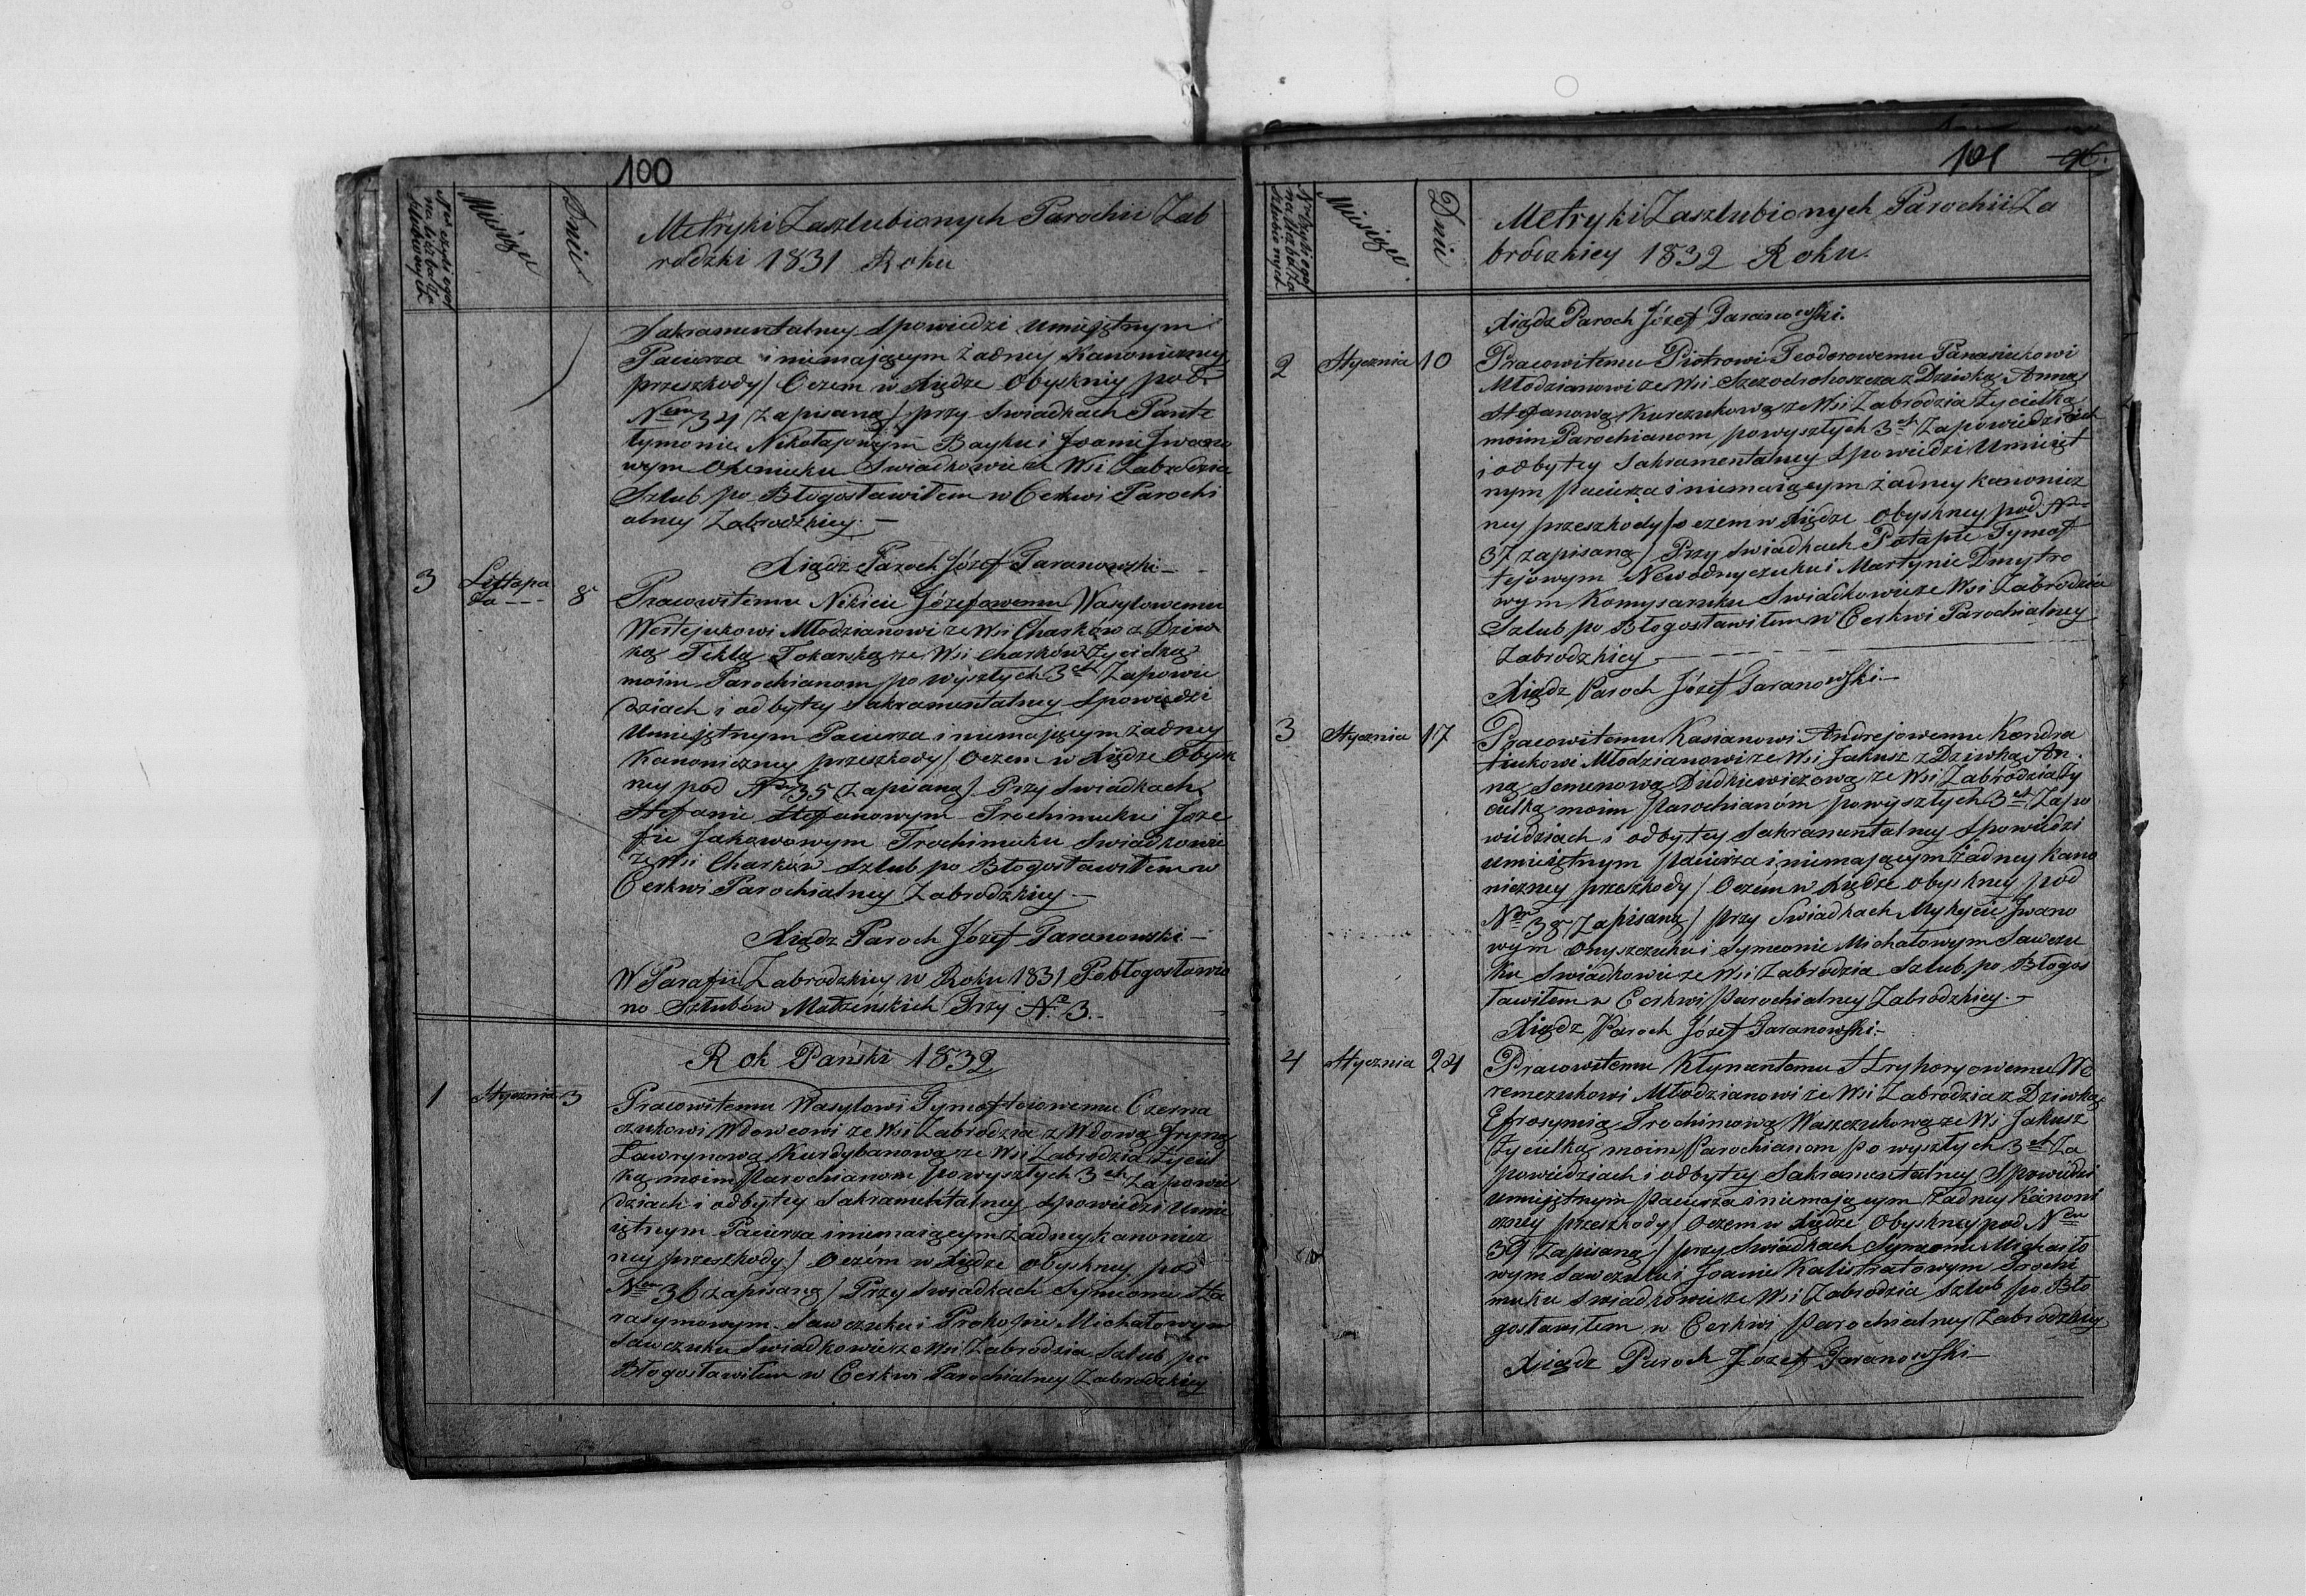 100
Miesiąc
Dnie
Metryki Zaszlubionych Parochii Zab
rodzki 1831 Roku
Sakramentalney Spowiedzi umiejętnym
Pacierza i niemającym żadney Kanoniczney
przeszkody / Oczem w Xiędze Obyskniy pod
Nem 34 / zapisaną / przy Swiadkach Pante
tymonie Nikołajowym Bayku i Joanie Iwano
wym Świadkowie ze Wsi Zabrodzia
Szlub po Błogosławiłem w Cerkwi Parochi
alney Zabrodzkiey. —
Xiądz Paroch Józef Taranowski —
3 Listopa
da --- 8
Pracowitemu Nikicie Józefowemu Wasylowemu
Młodzianowi ze Wsi Charków z Dziw
ką Teklą Tokarską ze Wsi Charków Życielką
moim Parochianom po wyszłych 3ch Zapowie
dziach i odbytey Sakramentalney Spowiedzi
Umiejętnym Pacierza i niemającym żadney
Kanoniczney przeszkody / Oczem w Xiędze Obysk
ney pod Nem 35 / Zapisaną / Przy Swiadkach
Stefanie Stefanowym Trochimuku i Joze
fie Jakowowym Trochimuku Swiadkowie
ze Wsi Charków Szlub po Błogosławiłem w
Cerkwi Parochialney Zabrodzkiey —
Xiądz Paroch Józef Taranowski —
W Parafii Zabrodzkiey w Roku 1831 Pobłogosławio
no Szlubów Małżeńskich Trzy No 3. —
Rok Pański 1832
1 Stycznia 3
Pracowitemu Wasylowi Tymofteiowemu Czerna
czukowi Wdowcowi ze Wsi Zabrodzia z Wdową Iryną
Ławrynową Kurdybanową ze Wsi Zabrodzia Życiel
ką moim Parochianom po wyszłych 3ch Zapowie
dziach i odbytey Sakramentalney Spowiedzi Umie
iętnym Pacierza i niemaiącym żadney Kanonicz
ney przeszkody / Oczém w Xiędze obyskney pod
Nem 36 zapisaną / Przy Swiadkach Symeonie Ha
rasymowym Sawczuku i Prokopie Michałowym
Sawczuku Swiadkowie ze Wsi Zabrodzia Szlub po
Błogosławiłem w Cerkwi Parochialney Zabrodzkiey
101 96.
Miesiąc
Dnie
Metryki Zaszlubionych Parochii Za
brodzkiey 1832 Roku.
Xiądz Paroch Józef Taranowski.
2 Stycznia 10
Pracowitemu Piotrowi Teodorowemu Panasiukowi
Młodzianowi ze Wsi z Dziwką Anną
Stefanową Kurczukową ze Wsi Zabrodzia Życielką
moim Parochianom po wyszłych 3ch Zapowiedziach
i odbytey Sakramentalney Spowiedzi Umieięt
nym Pacierza i niemaiącym żadney kanonicz
ney przeszkody / o czem w Xiędze Obyskney pod Nem
37 zapisaną / Przy Swiadkach Potapie Tymof
tejowym Newodnyczuku i Martynie Dmytro
wym Komysaruku Swiadkowie ze Wsi Zabrodzia
Szlub po Błogosławiłem w Cerkwi Parochialney
Zabrodzkiey
Xiądz Paroch Józef Taranowski. —
3 Stycznia 17
Pracowitemu Kasianowi Andrejowemu Kondra
tiukowi Młodzianowi ze Wsi Jakusz z Dziwką An
ną Semenową Dudkiewiczową ze Wsi Zabrodzia Ży
cielką moim Parochianóm po wyszłych 3ch Zapo
wiedziach i odbytey Sakramentalney Spowiedzi
umieiętnym Pacierza i niemającym żadney Kano
niczney przeszkody / Oczém w Xiędze obyskney pod
Nem 38 / Zapisaną / przy Swiadkach Mykycie Iwano
wym Onyszczuku i Symeonie Michałowym Sawczu
ku Swiadkowie ze Wsi Zabrodzia Szlub po Błogos
ławiłem w Cerkwi Parochialney Zabrodzkiey. —
Xiądz Paroch Józef Taranowski. —
4 Stycznia 24
Pracowitemu Kłymantomu Hryhoryowemu We
remczukowi Młodzianowi ze Wsi Zabrodzia z Dziwką
Efrosymią Trochimową Waszczukową ze Wsi Jakusz
Życielką moim Parochianom po wyszłych 3ch Za
powiedziach i odbytey Sakramentalney Spowiedzi
umiejętnym Pacierza i niemającym żadney Kanoni
czney przeszkody / Oczem w Xiędze Obyskney pod Nem
39 / Zapisaną / przy Swiadkach Symeonie Michaiło
wym Sawczuku i Joanie Kalistratowym Trochi
muku Swiadkowie ze Wsi Zabrodzia Szlub po Bło
gosławiłem w Cerkwi Parochialney Zabrodzkiey
Xiądz Paroch Józef Taranowski —